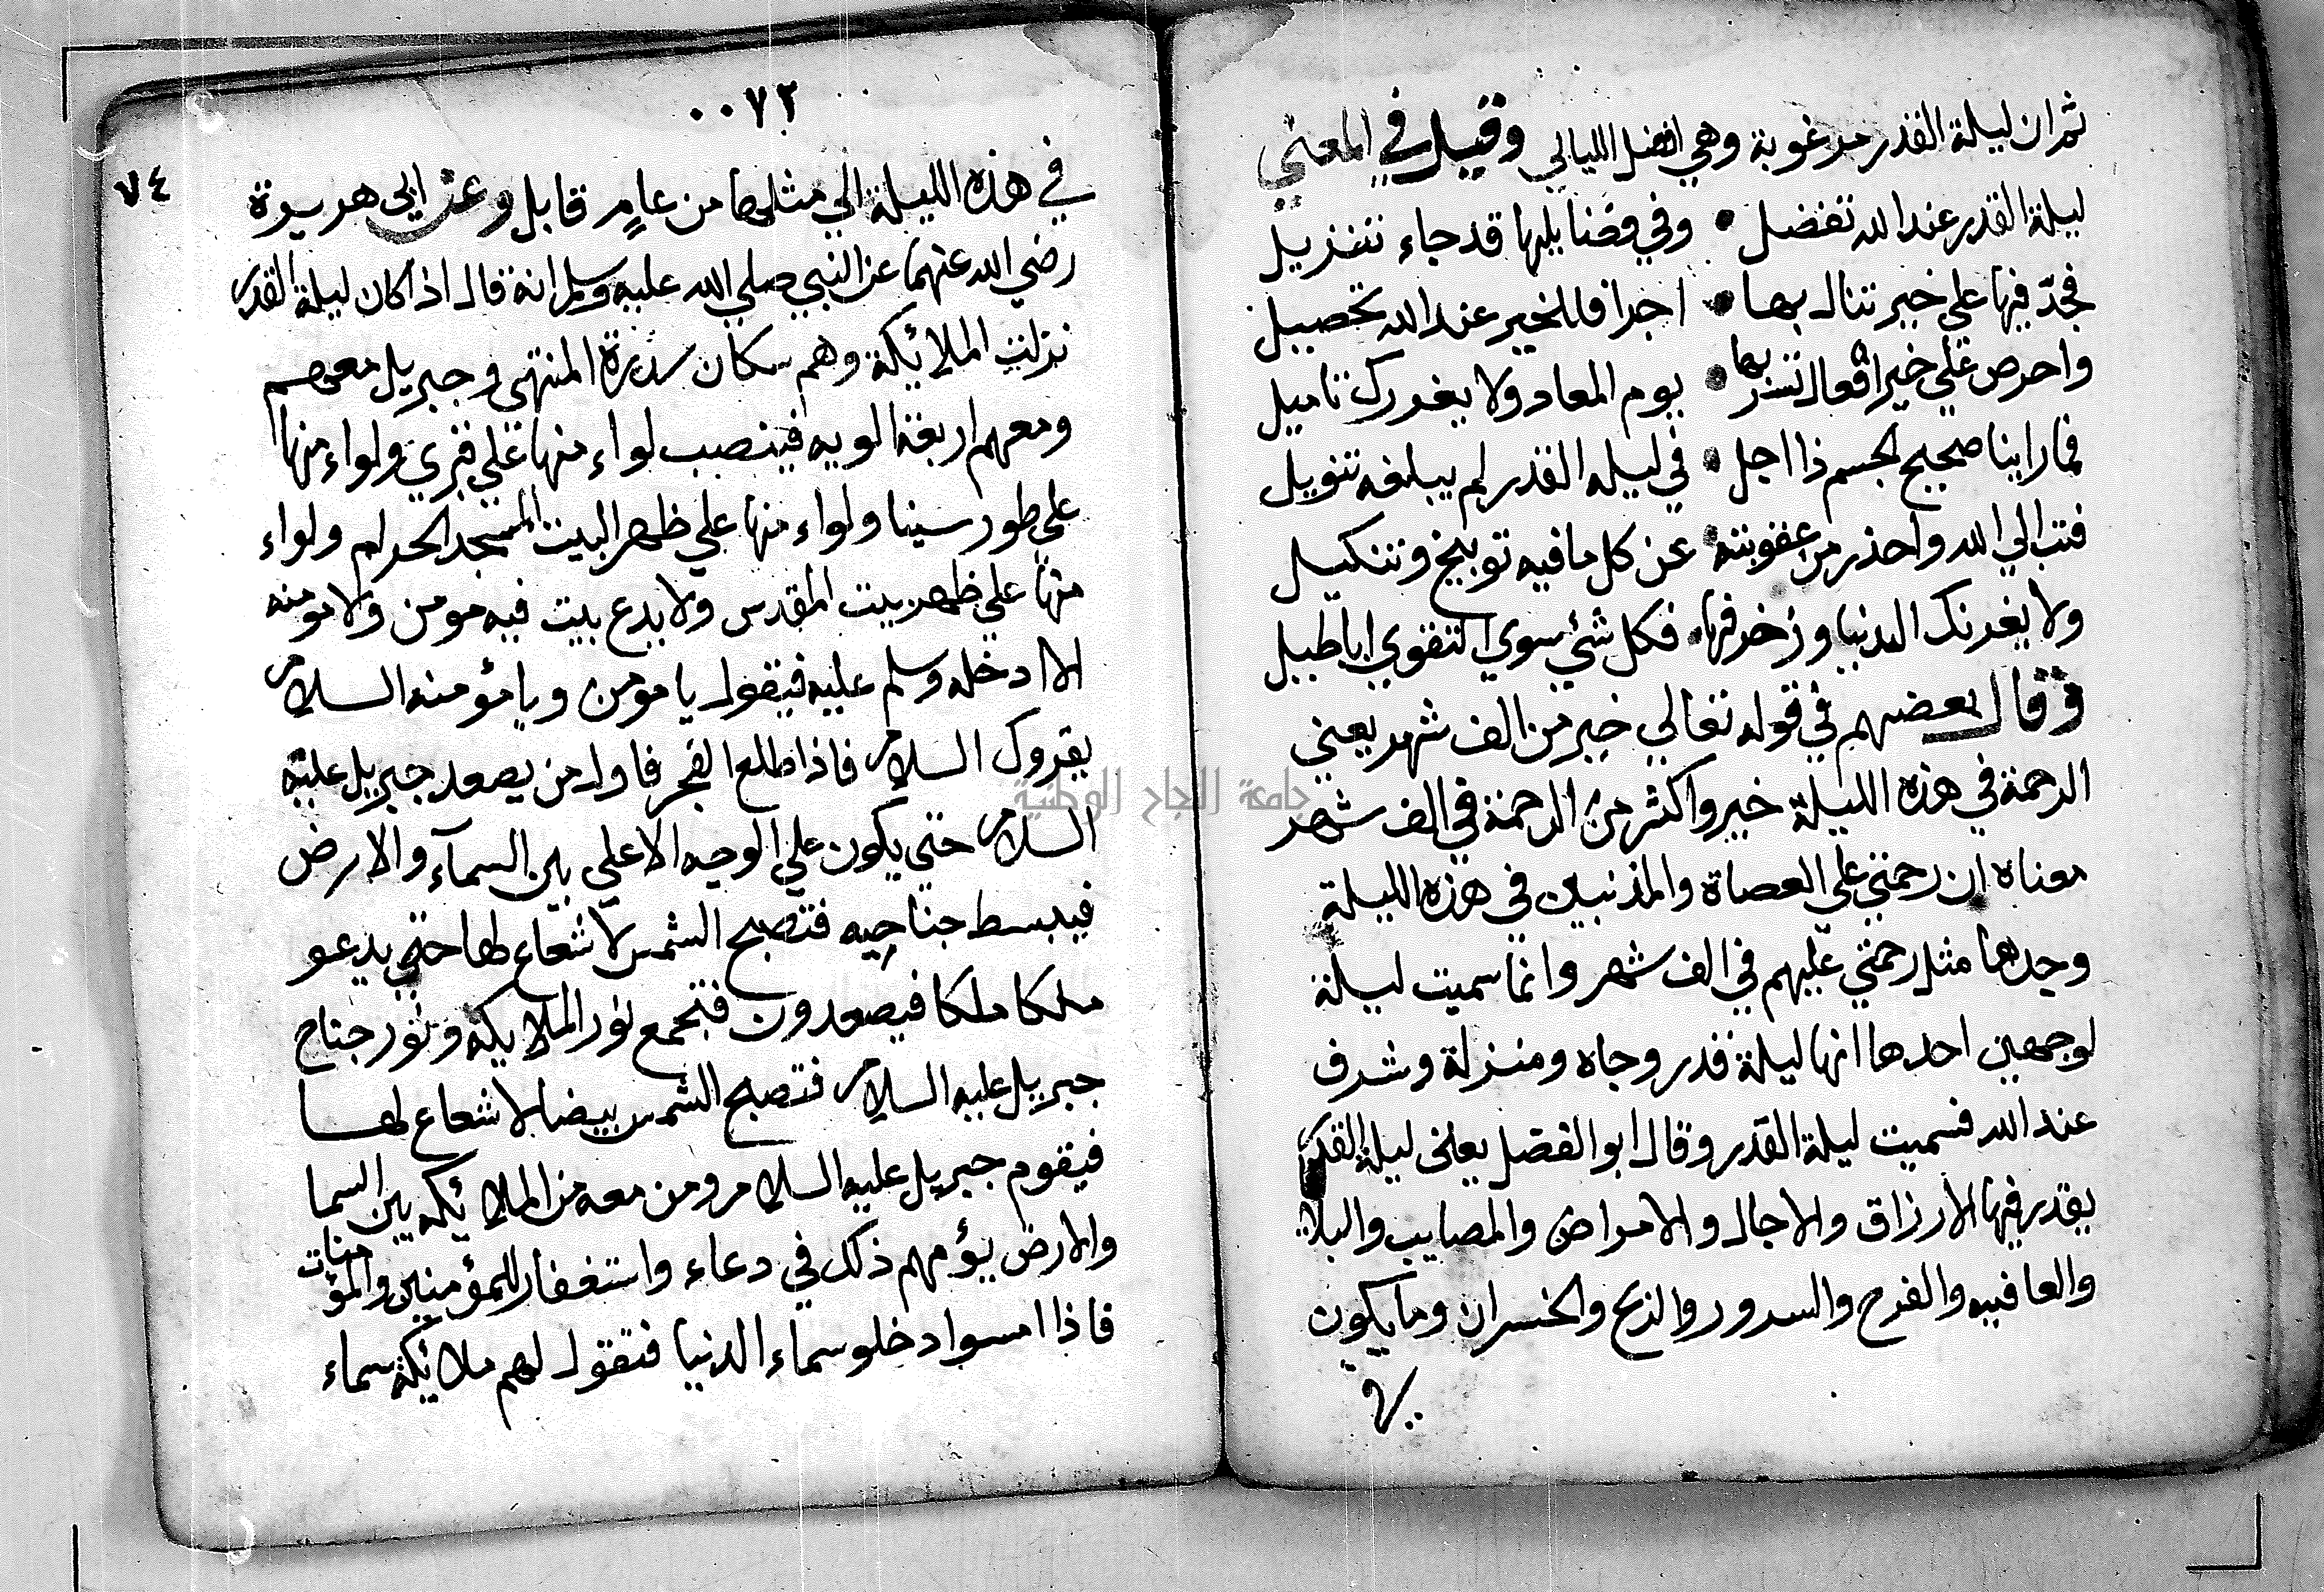 ثم ان ليلة القدر مرغوبة وهي افضل الليالي وقيل في المعني
ليلة القدر عند الله تفضل • وفي فضايلها قد جاء تنزيل
فجدّ فيها علي خير تنال بها • اجرا فللخير عند الله تحصيل
واحرص علي خير افعال تسر بها • يوم المعاد ولا يغررك تاميل
فما راينا صحيح لجسم ذا اجل • في ليله القدر لم يبلغه تنويل
فتب الي الله واحذر من عقوبته • عن كل ما فيه توبيخ وتنكيل
ولا يغرنك الدنيا وزخرفها • فكل شئ سوي التقوي اباطيل
وقال بعضهم في قوله تعالي خير من الف شهر يعني
الرحمة في هذه الليلة خير واكثر من الرحمة في الف شهر
معناه ان رحمتي علي العصاة والمذنبين في هذه الليلة
وحدها مثل رحمتي عليهم في الف شهر وانما سميت ليلة
لوجهين احدها انها ليلة قدر وجاه ومنزلة وشرف
عند الله فسميت ليلة القدر وقال ابو الفضل يعني ليلة القدر
يقدر فيها الارزاق والاجال والامراض والمصايب والبلاء
والعافيه والفرح والسرور والربح والخسران وما يكون
في
٠٠٧٢
٧٤
في هذه الليلة الي مثلها من عام قابل وعن ابي هريرة
رضي الله عنهما عن النبي صلي الله عليه وسلم انه قال اذا كان ليلة القدر
نزلت الملائكة وهم سكان سدرة المنتهي وجبريل معهم
ومعهم اربعة الويه فينصب لواء منها علي قبري ولواء منها
علي طور سينا ولواء منها علي ظهر البيت المسجد الحرام ولواء
منها علي ظهر بيت المقدس ولا يدع بيت فيه مومن ولا مومنه
الا ادخله وسلم عليه فيقول يا مومن ويا مؤمنه السلام
يقروك السلام فاذا طلع الفجر فاول من يصعد جبريل عليه
السلام حتي يكون علي الوجيه الاعلي بين السمآء والارض
فيبسط جناحيه فتصبح الشمس لا شعاع لها حتي يدعو
ملكا ملكا فيصعدون فتجمع نور الملايكه ونور جناح
جبريل عليه السلام فتصبح الشمس بيضا لا شعاع لها
فيقوم جبريل عليه السلام ومن معه من الملائكه بين السما
والارض يؤمهم ذلك في دعاء واستغفار للمؤمنين والمؤمنات
فاذا امسوا دخلو سماء الدنيا فتقول لهم ملائكة سماء
جامعة النجاح الوطنية